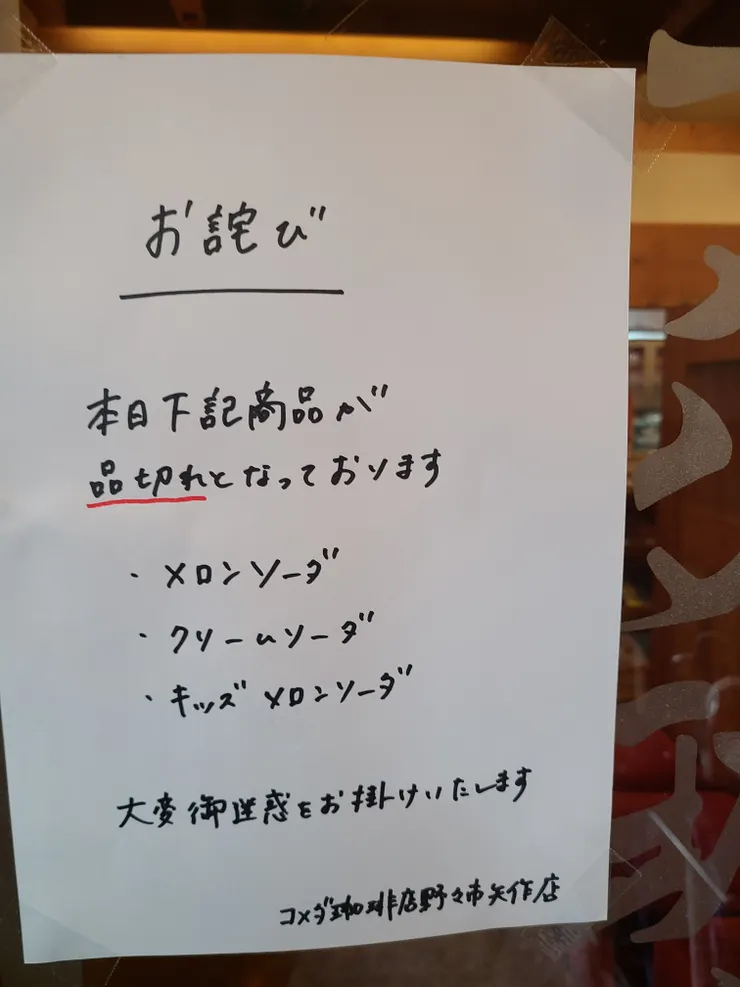 お詫び
本日下記商品が
品切れとなっております
・メロンソーダ
・クリームソーダ
・キッズメロンソーダ
大変御迷惑をお掛けいたします
コメダ珈琲店野々市矢作店